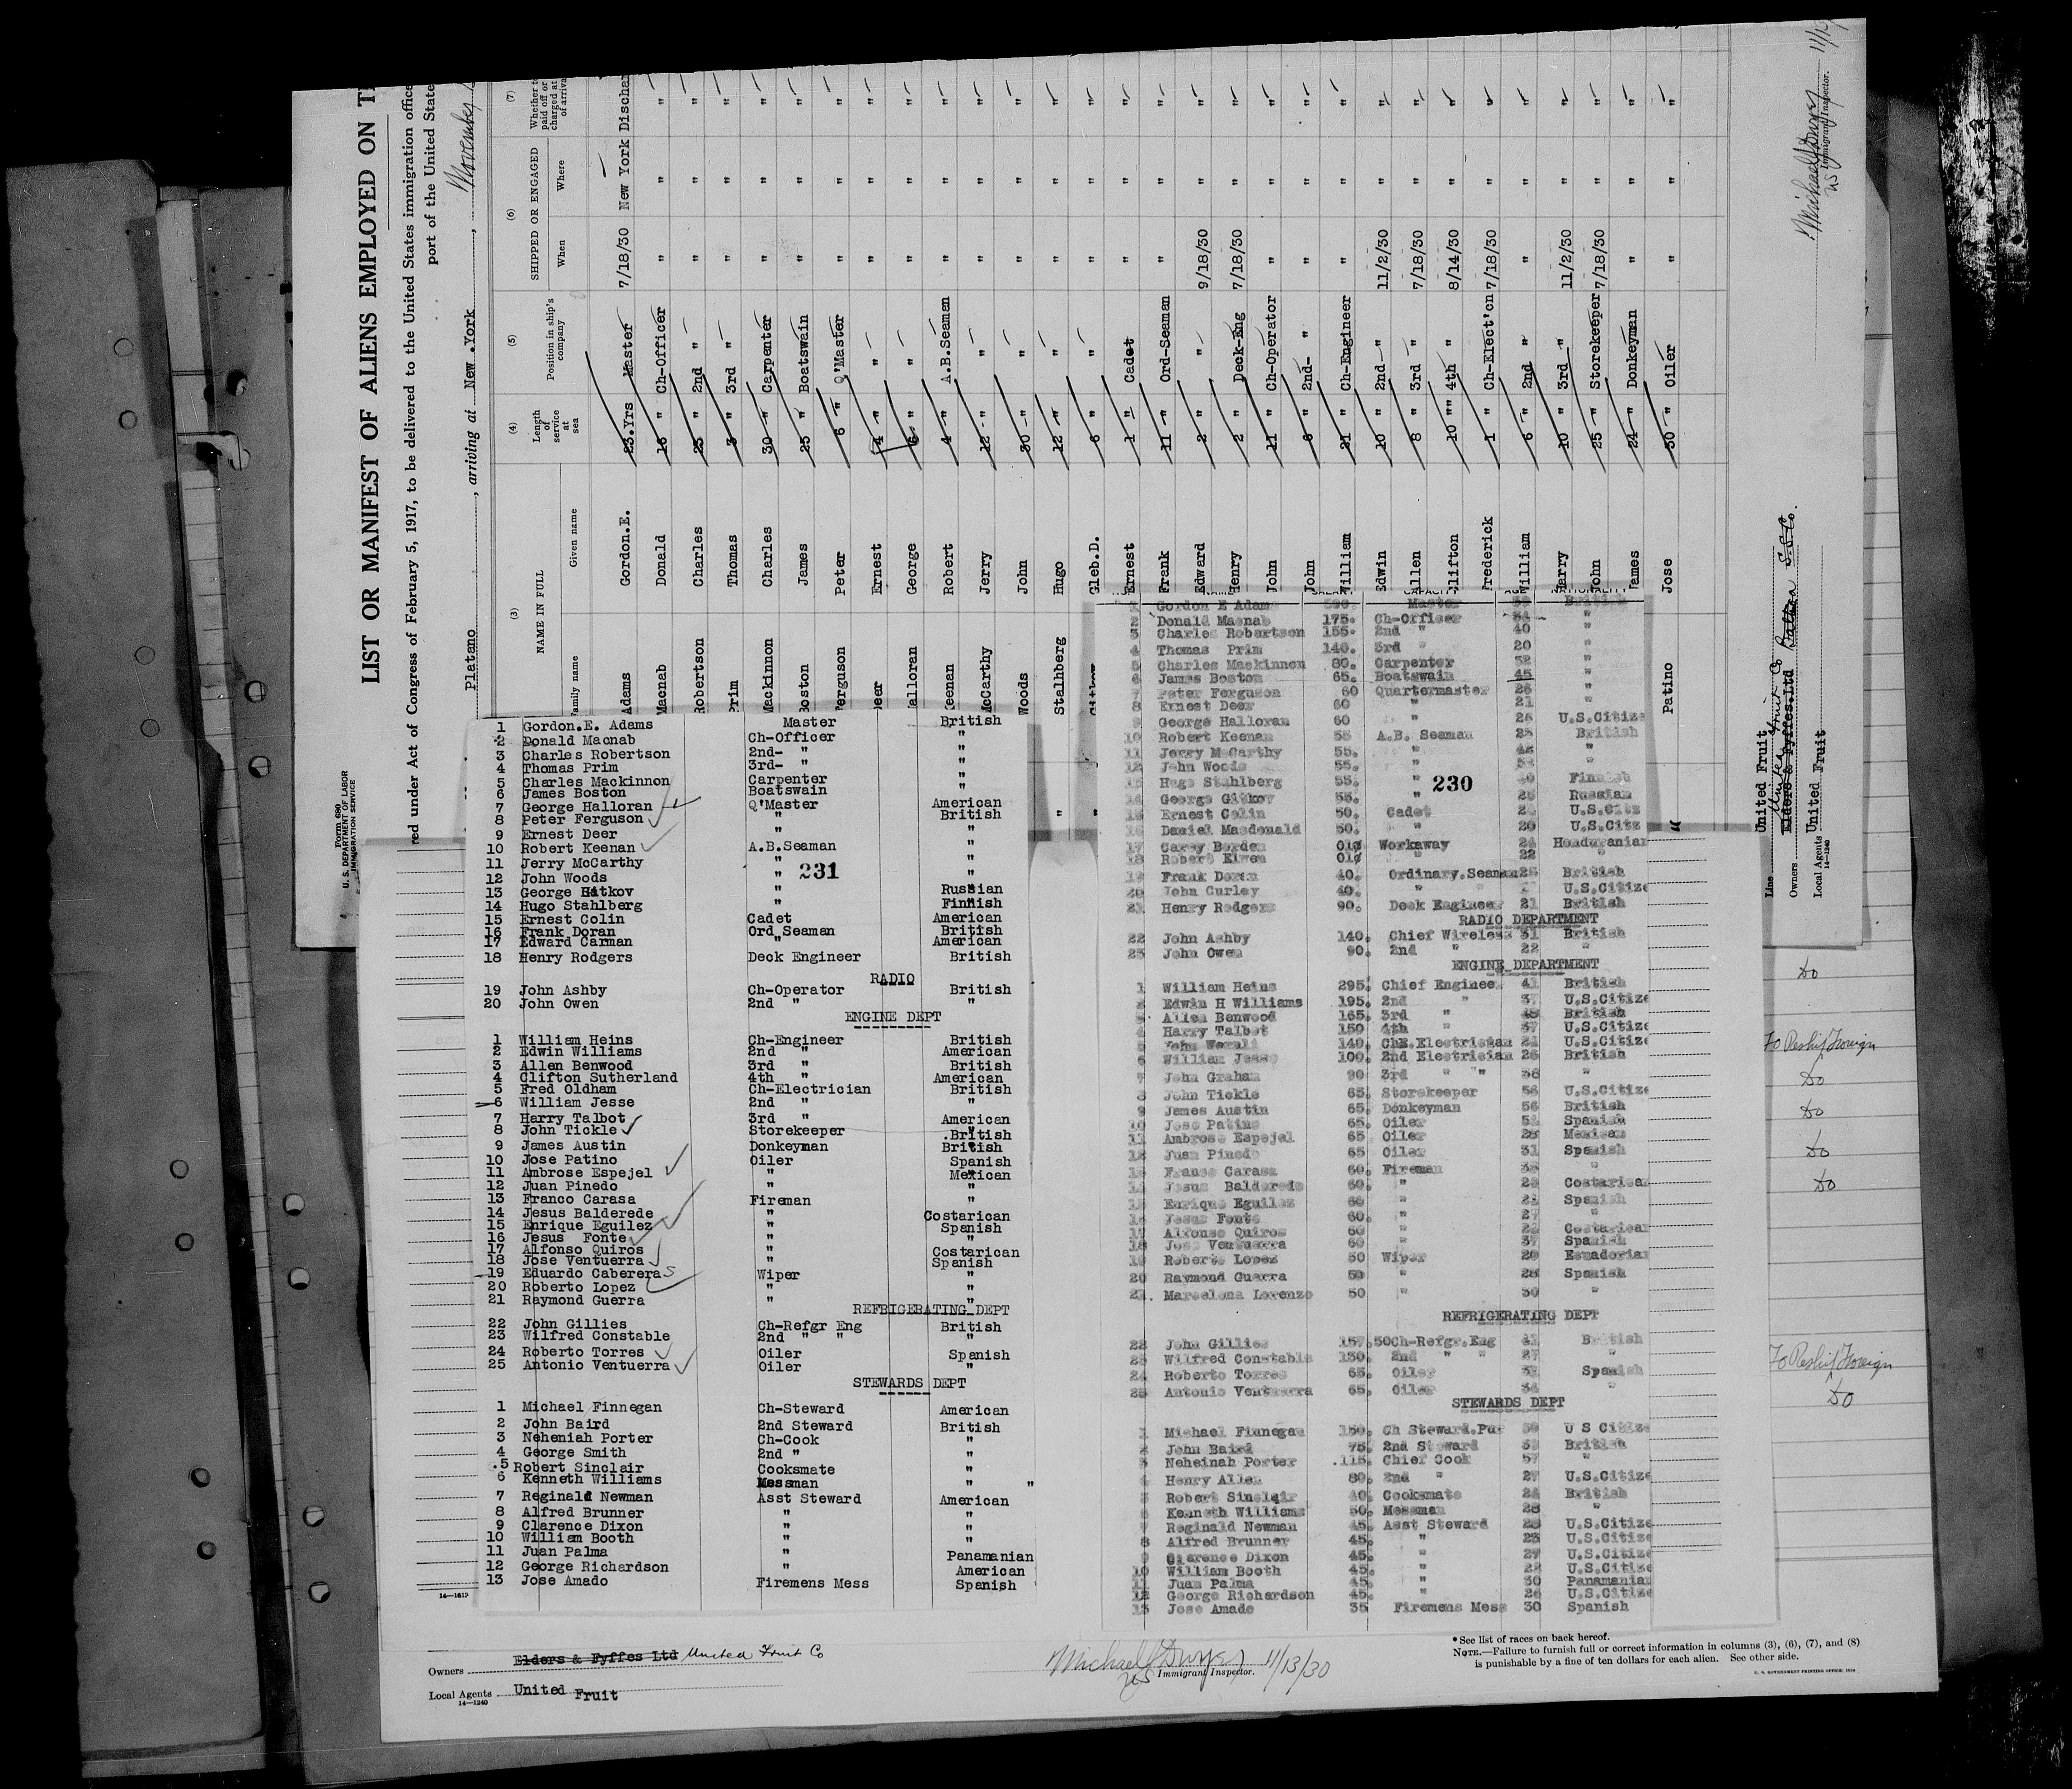 Form 680
U. S. DEPARTMENT OF LABOR
IMMIGRATION SERVICE
LIST OR MANIFEST OF ALIENS EMPLOYED ON
red under Act of Congress of February 5, 1917, to be delivered to the United States immigration office
port of the United State
Platano , arriving at New York , November
(3) (4) (5) (6) (7)
NAME IN FULL Length of service at sea Position in ship's company SHIPPED OR ENGAGED
Family name Given name When Where
Adams Gordon.E. 23.Yrs Master 7/18/30 New York Dischar
Macnab Donald 16 " Ch-Officer " " "
Robertson Charles 25 " 2nd " " " "
Prim Thomas 3 " 3rd " " " "
Mackinnon Charles 30 " Carpenter " " "
Boston James 25 " Boatswain " " "
Ferguson Peter 6 " Q'Master " " "
eer Ernest 4 " " " " "
alloran George 6 " " " " "
eenan Robert 4 " A.B.Seaman " " "
McCarthy Jerry 12 " " " " "
Woods John 30 " " " " "
Stalhberg Hugo 12 " " " " "
Gleb.D. 6 " " " " "
Ernest 1 " Cadet " " "
Frank 11 " Ord-Seaman " " "
Edward 2 " " 9/18/30 " "
Henry 2 " Deck-Eng 7/18/30 " "
John 11 " Ch-Operator " " "
John 6 " 2nd- " " " "
William 21 " Ch-Engineer " " "
Edwin 10 " 2nd " 11/2/30 " "
Allen 8 " 3rd " 7/18/30 " "
Clifton 10 "" 4th " 8/14/30 " "
Frederick 1 " Ch-Elect'cn 7/18/30 " "
William 6 " 2nd " " " "
Harry 10 " 3rd " 11/2/30 " "
John 25 " Storekeeper 7/18/30 " "
James 24 " Donkeyman " " "
Patino Jose 30 " Oiler " " "
Line United Fruit
Owners Elders & Fyffes.Ltd United Fruit Co
Local Agents United Fruit
14—1240
Immigrant Inspector.
1 Gordon.E. Adams Master British
2 Donald Macnab Ch-Officer "
3 Charles Robertson 2nd- " "
4 Thomas Prim 3rd- " "
5 Charles Mackinnon Carpenter "
6 James Boston Boatswain "
7 George Halloran Q'Master American
8 Peter Ferguson " British
9 Ernest Deer " "
10 Robert Keenan A.B.Seaman "
11 Jerry McCarthy " "
231
12 John Woods " "
13 George Hitkov " Russian
14 Hugo Stahlberg " Finnish
15 Ernest Colin Cadet American
16 Frank Doran Ord Seaman British
17 Edward Carman " American
18 Henry Rodgers Deck Engineer British
RADIO
19 John Ashby Ch-Operator British
20 John Owen 2nd " "
ENGINE DEPT
1 William Heins Ch-Engineer British
2 Edwin Williams 2nd " American
3 Allen Benwood 3rd " British
4 Clifton Sutherland 4th " American
5 Fred Oldham Ch-Electrician British
6 William Jesse 2nd " "
7 Harry Talbot 3rd " American
8 John Tickle Storekeeper .British
9 James Austin Donkeyman British
10 Jose Patino Oiler Spanish
11 Ambrose Espejel " Mexican
12 Juan Pinedo " "
13 Franco Carasa Fireman "
14 Jesus Balderede " Costarican
15 Enrique Eguilez " Spanish
16 Jesus Fonte " "
17 Alfonso Quiros " Costarican
18 Jose Ventuerra " Spanish
19 Eduardo Caberera Wiper "
20 Roberto Lopez " "
21 Raymond Guerra " "
REFRIGERATING DEPT
22 John Gillies Ch-Refgr Eng British
23 Wilfred Constable 2nd " " "
24 Roberto Torres Oiler Spanish
25 Antonio Ventuerra Oiler "
STEWARDS DEPT
1 Michael Finnegan Ch-Steward American
2 John Baird 2nd Steward British
3 Neheniah Porter Ch-Cook "
4 George Smith 2nd " "
.5 Robert Sinclair Cooksmate "
6 Kenneth Williams Messman " "
7 Reginald Newman Asst Steward American
8 Alfred Brunner " "
9 Clarence Dixon " "
10 William Booth " "
11 Juan Palma " Panamanian
12 George Richardson " American
13 Jose Amado Firemens Mess Spanish
Gordon E Adams Master British
2 Donald Macnab 175. Ch-Officer "
3 Charles Robertson 155. 2nd " 40 "
4 Thomas Prim 140. 3rd " 20 "
5 Charles Mackinnon 80. Carpenter 32 "
6 James Boston 65. Boatswain 45 "
7 Peter Ferguson 60 Quartermaster 26 "
8 Ernest Deer 60 " 21 "
9 George Halloran 60 " 26 U.S.Citize
10 Robert Keenan 55 A.B. Seaman 25 British
11 Jerry McCarthy 55. " 42 "
12 John Woods 55. " "
230
13 Hugo Stahlberg 55. " 40 Finnish
14 George Gitkov 55. " 25 Russian
15 Ernest Colin 50. Cadet U.S.Citz
16 Daniel Macdonald 50. " 20 U.S.Citz
17 Carey Borden 01¢ Workaway 24 Honduranian
18 Robert Eiwen 01¢ " 22 "
19 Frank Doran 40. Ordinary.Seaman 25 British
20 John Curley 40. " U.S.Citize
21 Henry Rodgers 90. Deck Engineer 21 British
RADIO DEPARTMENT
22 John Ashby 140. Chief Wireless 31 British
23 John Owen 90. 2nd " 22 "
ENGINE DEPARTMENT
1 William Heins 295. Chief Enginee 41 British
2 Edwin H Williams 195. 2nd " 37 U.S.Citize
3 Allen Benwood 165. 3rd " British
4 Harry Talbot 150 4th " 37 U.S.Citize
5 John 140. Electrician 21 U.S.Citize
6 William Jesse 100. 2nd Electrician 26 British
7 John Graham 90 3rd " " "
8 John Tickle 65. Storekeeper 56 U.S.Citize
9 James Austin 65. Donkeyman 56 British
10 Jose Patino 65. Oiler Spanish
11 Ambrose Espejel 65 Oiler 28 Mexican
12 Juan Pinedo 65 Oiler 31 Spanish
13 Franco Carasa 60. Fireman "
14 Jesus Balderede 60. " Costarican
15 Enrique Eguilez 60 " Spanish
16 Jesus Fonte 60. " 27 "
17 Alfonso Quiros 60 " Costarican
18 Jose Ventuerra 60 " 37 Spanish
19 Roberto Lopez 50 Wiper 20 Ecuadorian
20 Raymond Guerra 50 " 28 Spanish
21. Marcelena Lorenzo 50 " 30 "
REFRIGERATING DEPT
22 John Gillies 157.50 Ch-Refgr.Eng British
23 Wilfred Constable 130. 2nd " " 27 "
24 Roberto Torres 65. Oiler Spanish
25 Antonio Ventuerra 65. Oiler "
STEWARDS DEPT
1 Michael Finnegan 150. Ch Steward.Pur U S Citize
2 John Baird 75. 2nd Steward British
3 Neheinah Porter .115. Chief Cook 57 "
4 Henry Allen 80. 2nd " 27 U.S.Citize
5 Robert Sinclair 40. Cooksmate 24 British
6 Kenneth Williams 50. Messman 28 "
7 Reginald Newman 45. Asst Steward U.S.Citize
8 Alfred Brunner 45. " 23 U.S.Citize
9 Clarence Dixon 45. " 27 U.S.Citize
10 William Booth 45. " 22 U.S.Citize
11 Juan Palma 45. " 30 Panamanian
12 George Richardson 45. " 26 U.S.Citize
13 Jose Amado 35 Firemens Mess 30 Spanish
Do
To Reship Foreign
Do
Do
Do
Do
To Reship Foreign
Do
Owners Elders & Fyffes Ltd United Fruit Co
Local Agents United Fruit
14—1240
Michael Dwyer 11/13/30
US Immigrant Inspector.
*See list of races on back hereof.
NOTE.—Failure to furnish full or correct information in columns (3), (6), (7), and (8)
is punishable by a fine of ten dollars for each alien. See other side.